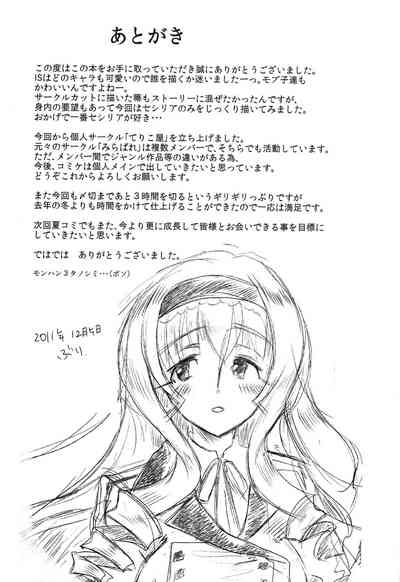 あとがき
この度はこの本をお手に取っていただき誠にありがとうございました。
ISはどのキャラも可愛いので誰を描くか迷いましたーっ。モブ子達も
かわいいんですよねー。
サークルカットに描いた箒もストーリーに混ぜたかったんですが、
身内の要望もあって今回はセシリアのみをじっくり描いてみました。
おかげで一番セシリアが好き…
今回から個人サークル「てりこ屋」を立ち上げました。
元々のサークル「みらぱれ」は複数メンバーで、そちらでも活動しています。
ただ、メンバー間でジャンル作品等の違いがある為、
今後、コミケは個人メインで出していきたいと思っています。
どうぞこれからよろしくお願いします。
また今回も〆切まであと３時間を切るというギリギリっぷりですが
去年の冬よりも時間をかけて仕上げることができたので一応は満足です。
次回夏コミでもまた、今より更に成長して皆様とお会いできる事を目標に
していきたいと思います。
ではでは　ありがとうございました。
モンハン３タノシミ…（ボソ）
2011年 12月5日
ぶり